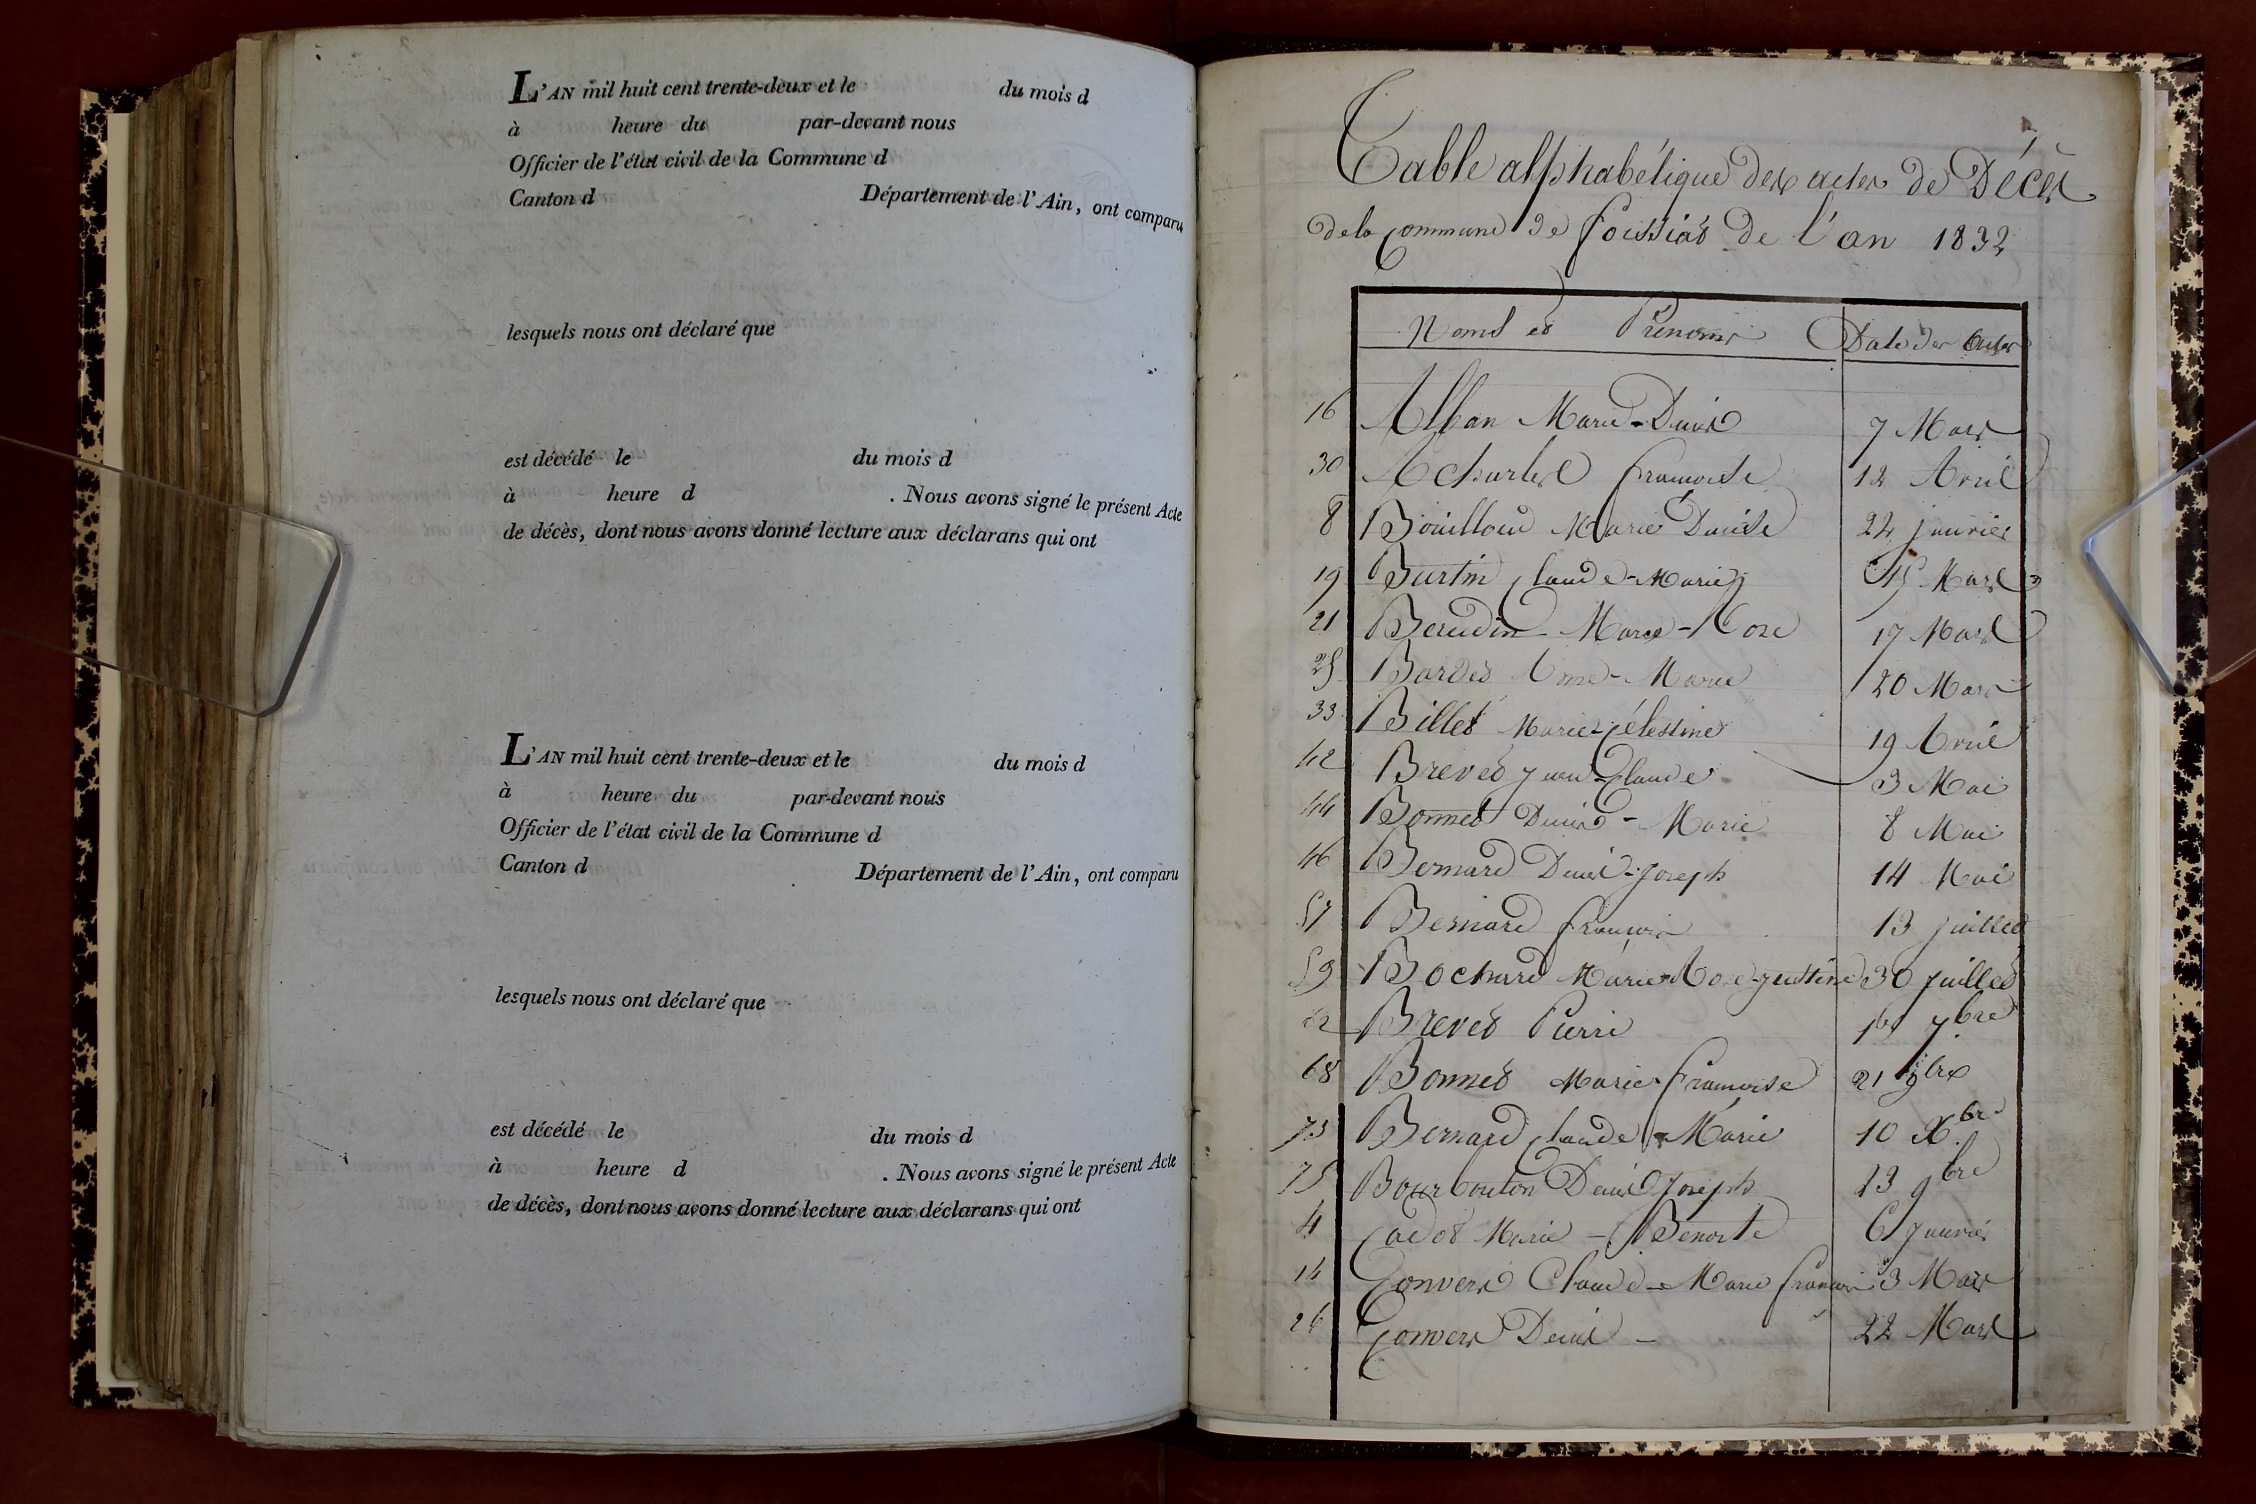 L'AN mil huit cent trente-deux et le du mois d
à heure du par-devant nous
Officier de l'état civil de la Commune d
Canton d Département de l'Ain, ont comparu
lesquels nous ont déclaré que
est décédé le du mois d
à heure d . Nous avons signé le présent Acte
de décès, dont nous avons donné lecture aux déclarans qui ont
L'AN mil huit cent trente-deux et le du mois d
à heure du par-devant nous
Officier de l'état civil de la Commune d
Canton d Département de l'Ain, ont comparu
lesquels nous ont déclaré que
est décédé le du mois d
à heure d . Nous avons signé le présent Acte
de décès, dont nous avons donné lecture aux déclarans qui ont
Table alphabétique des actes de Décès
de la Commune de foissiat de l'an 1832
Noms et Prénoms Date des Actes
16 Alban Marie-Denis 7 Mars
30 Acharles françoise 12 Avril
8 Bouilloud Marie Denise 24 janvier
19 Burtin Claude-Marie 15 Mars
21 Bereudin Marie-Rose 17 Mars
25 Bardet Anne-Marie 20 Mars
33 Billet Marie-Célestine 19 Avril
42 Brevet jean-Claude 3 Mai
44 Bonnet Denis-Marie 8 Mai
46 Bernard Denis-joseph 14 Mai
57 Bernard françois 13 juillet
59 Bochard Marie-Rose-justine 30 juillet
62 Brevet Pierre 1er 7bre
68 Bonnet Marie-françoise 21 9bre
73 Bernard Claude-Marie 10 Xbre
75 Bourbouton Denis joseph 13 9bre
4 Cadot Marie-Benoite 6 janvier
14 Convers Claude-Marie françois 3 Mars
26 Convers Denis - 22 Mars